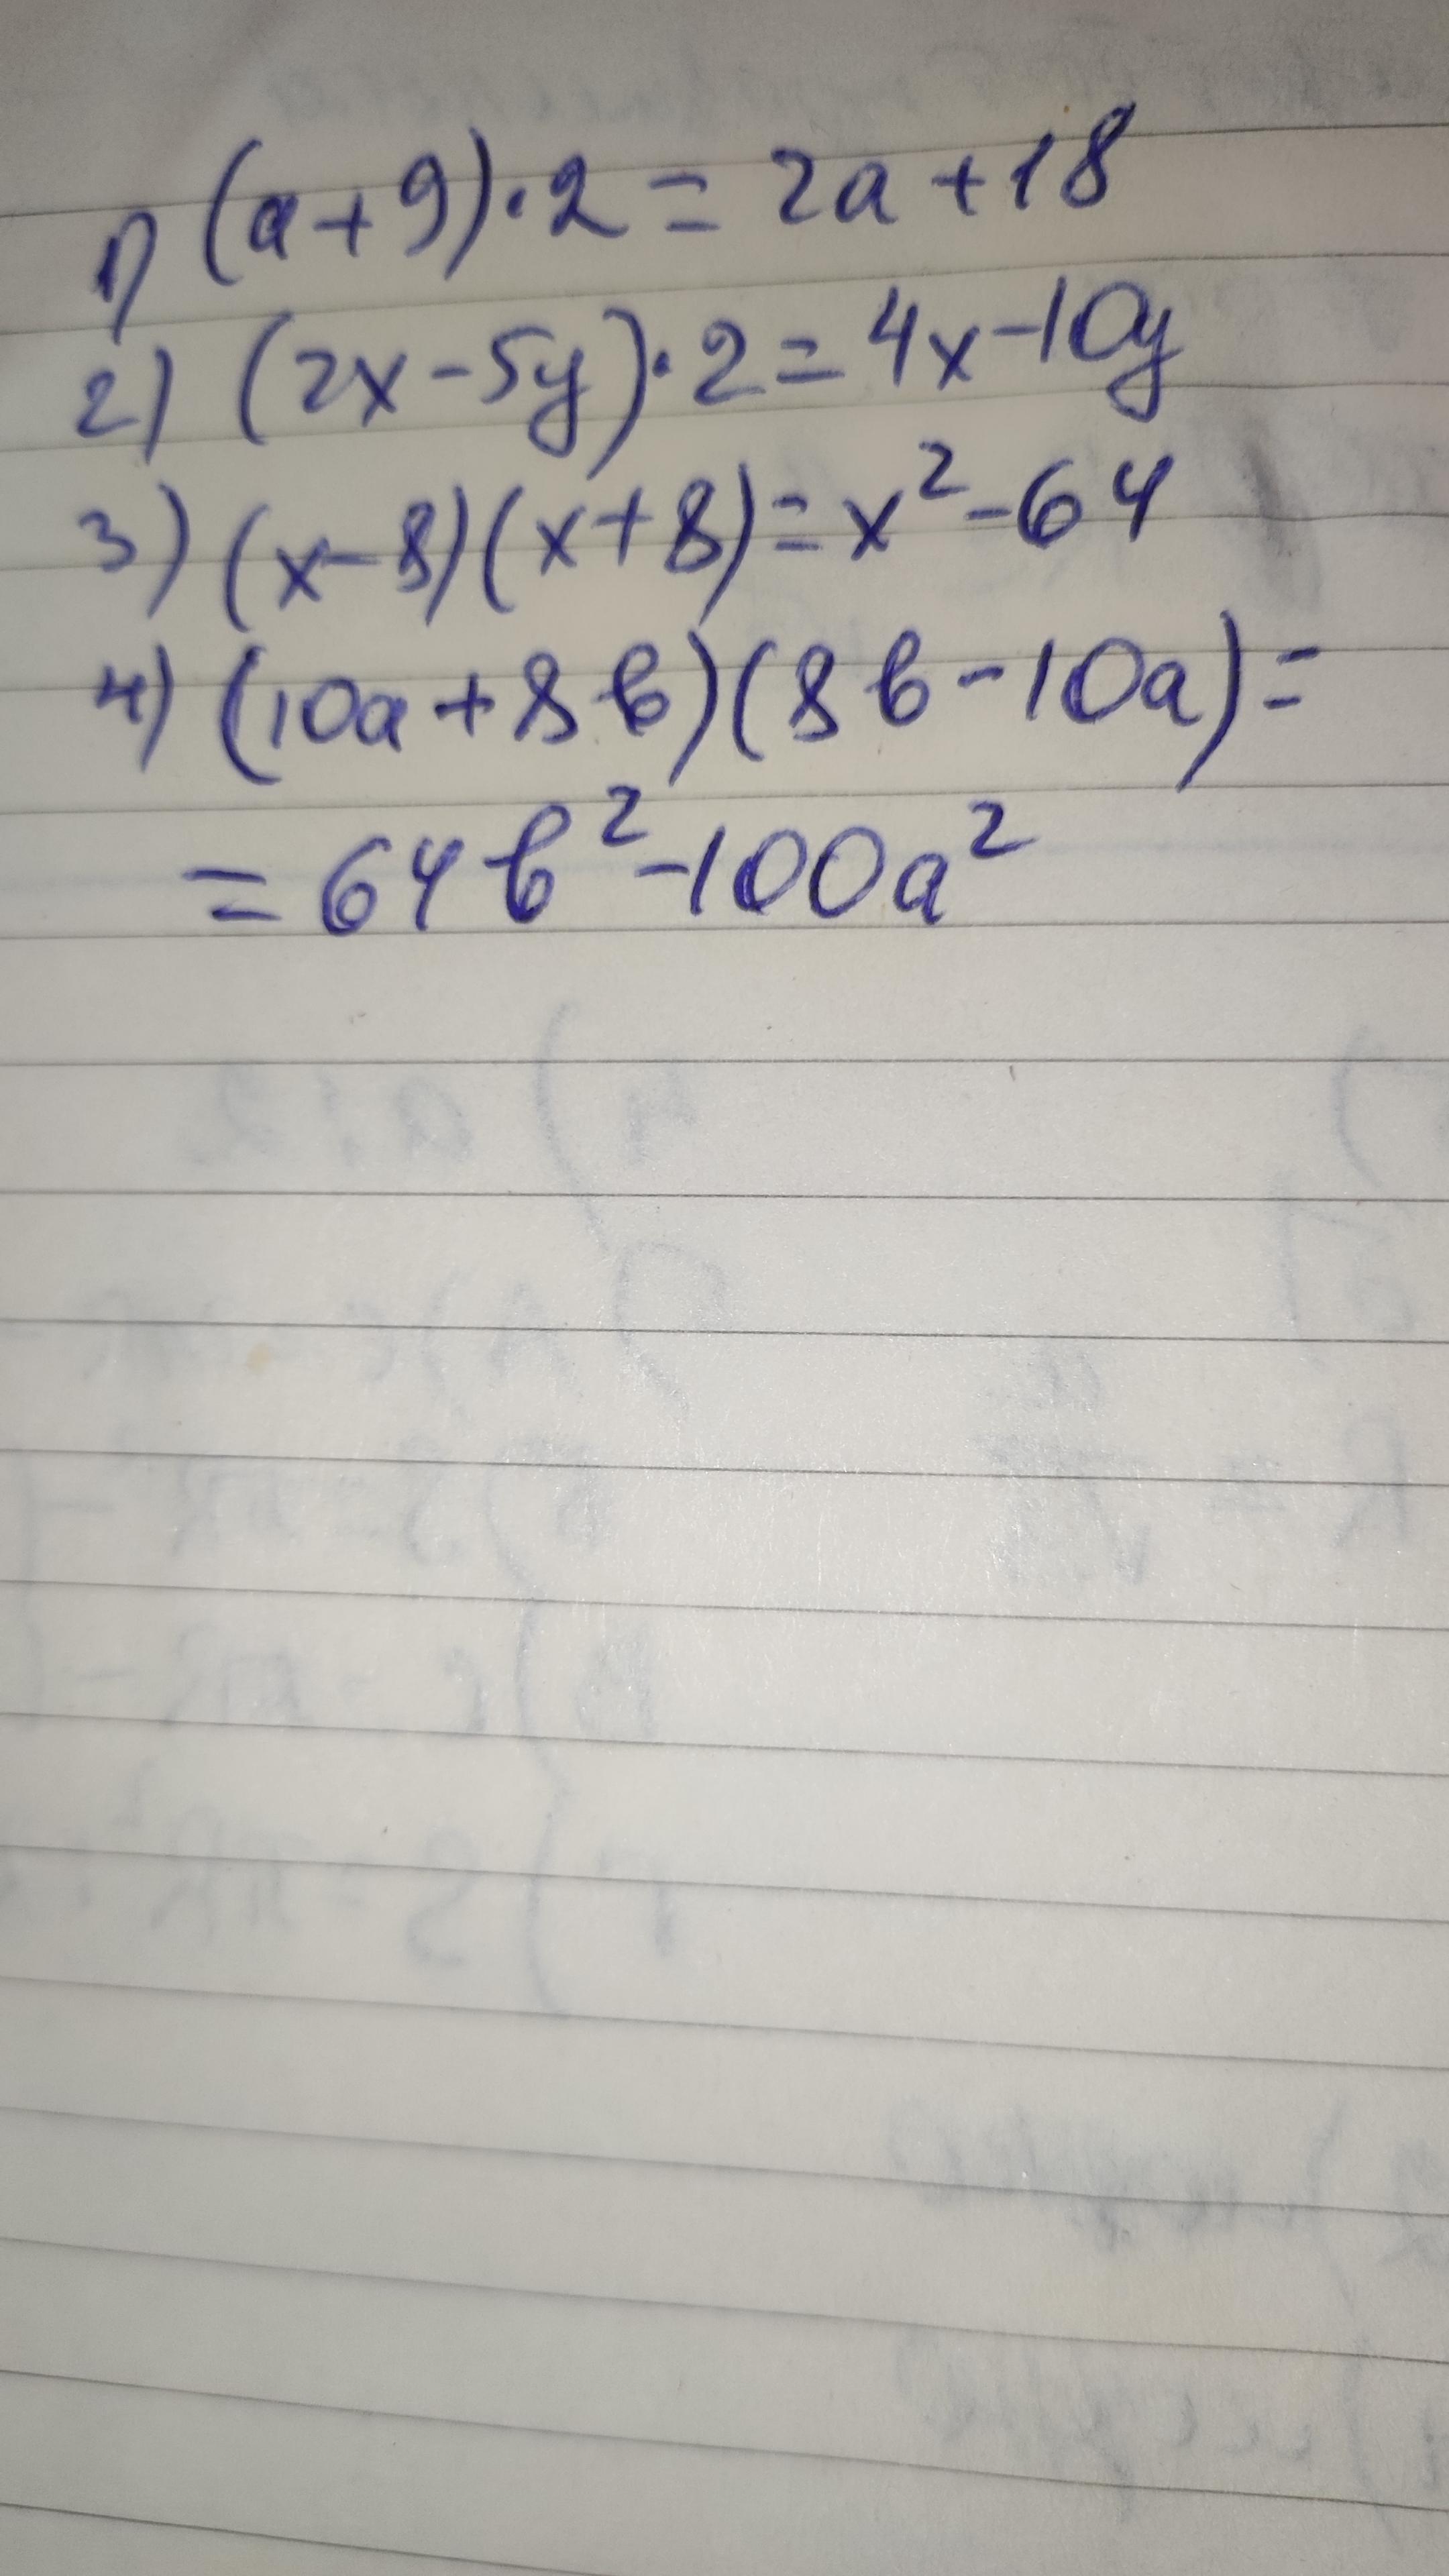 1) (a+9)·2=2a+18
2) (2x-5y)·2=4x-10y
3) (x-8)(x+8)=x²-64
4) (10a+8b)(8b-10a)=
=64b²-100a²